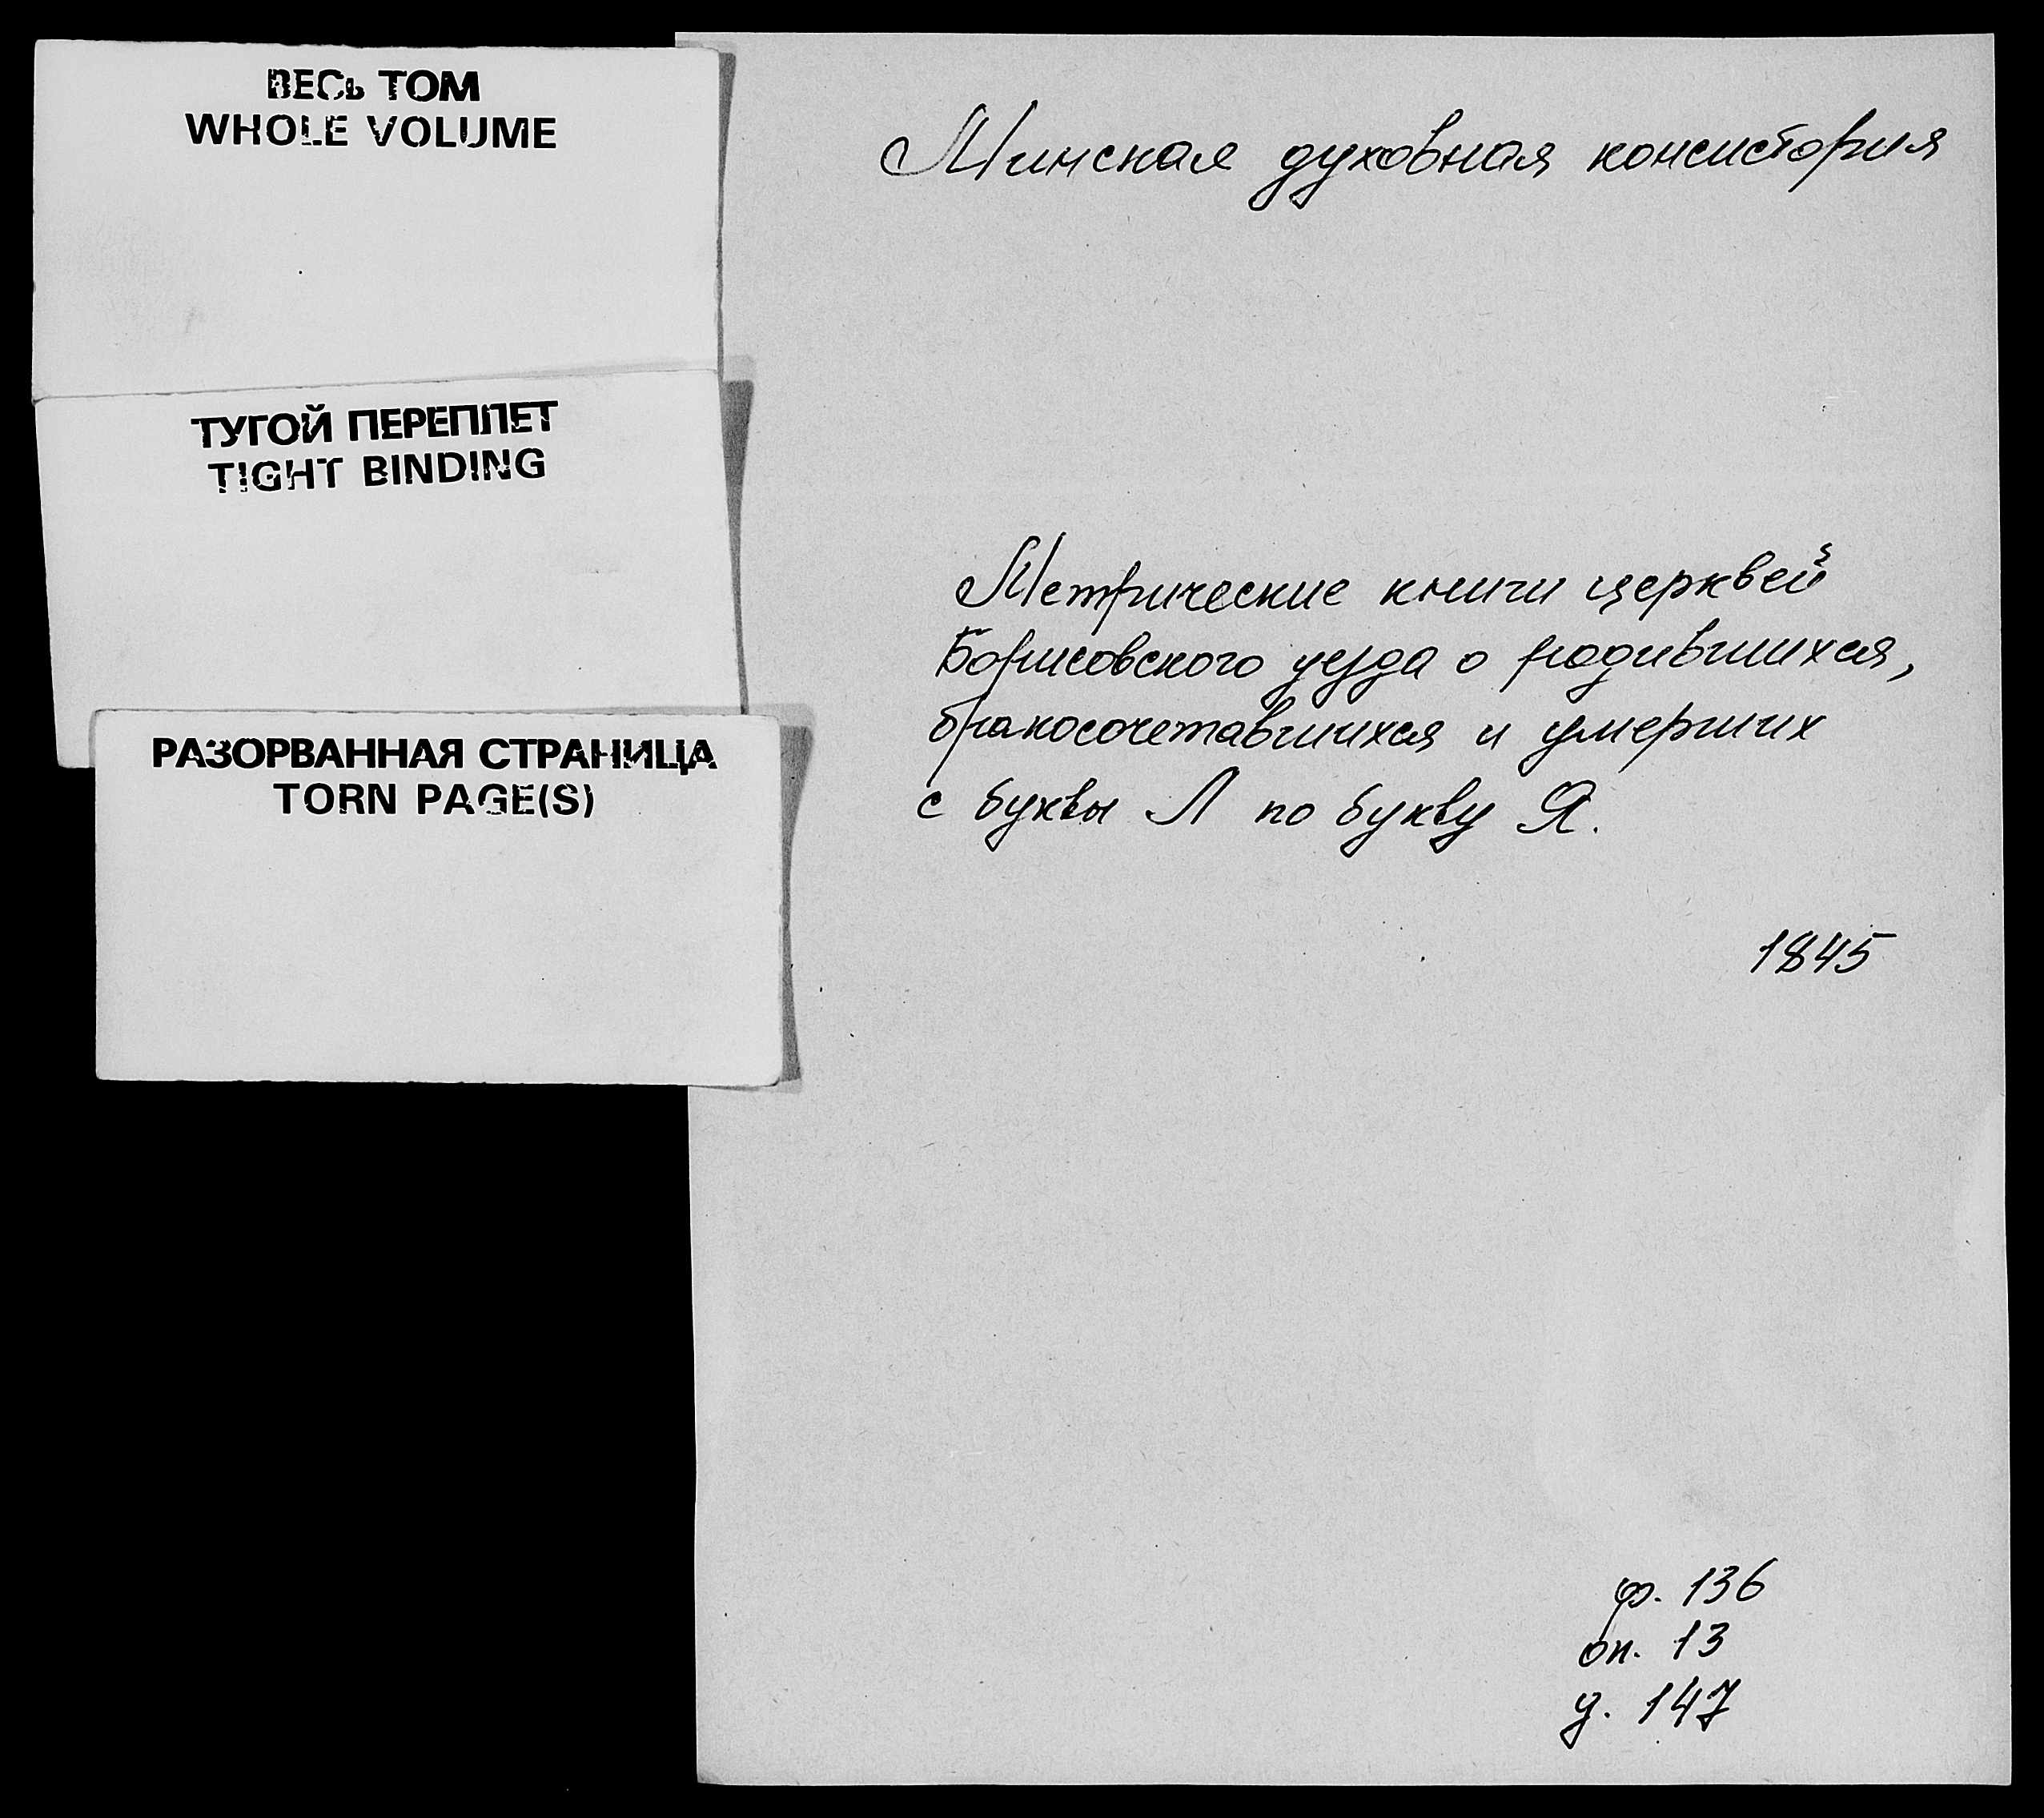 ВЕСЬ ТОМ
WHOLE VOLUME
ТУГОЙ ПЕРЕПЛЕТ
TIGHT BINDING
РАЗОРВАННАЯ СТРАНИЦА
TORN PAGE(S)
Минская духовная консистория
Метрические книги церквей
Борисовского уезда о родившихся,
бракосочетавшихся и умерших
с буквы Л по букву Я.
1845
ф. 136
оп. 13
д. 147